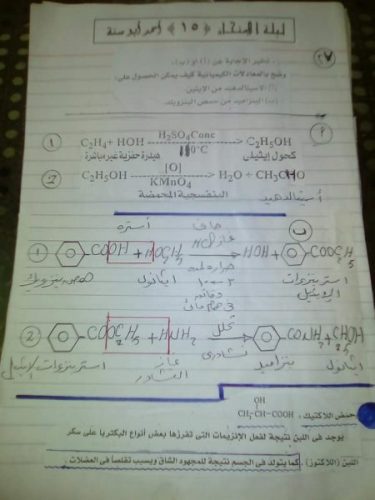 ليلة الامتحان ﴿ ١٥ ﴾ أحمد أبو سنة
٢٧
تخير الإجابة عن (أ) أو (ب)
وضح بالمعادلات الكيميائية كيف يمكن الحصول على:
(أ) الاسيتالدهيد من الإيثين
(ب) البنزاميد من حمض البنزويك
أ
① C₂H₄ + HOH H₂SO₄Conc 110°C C₂H₅OH
هيدرة حفزية غير مباشرة كحول إيثيلى
② C₂H₅OH [O] KMnO₄ H₂O + CH₃CHO
البنفسجية المحمضة أسيتالدهيد
ب
أستره جاف
غاز HCl
① COOH + HOC₂H₅ HOH + COOC₂H₅
حمض بنزويك ايثانول استر بنزوات الإيثيل
② COOC₂H₅ + HNH₂ تحلل نشادرى CONH₂ + C₂H₅OH
استر بنزوات الإيثيل غاز النشادر بنزاميد ايثانول
OH
حمض اللاكتيك: CH₃-CH-COOH
يوجد فى اللبن نتيجة لفعل الإنزيمات التى تفرزها بعض أنواع البكتريا على سكر
اللبن (اللاكتوز) . كما يتولد فى الجسم نتيجة للمجهود الشاق ويسبب تقلصاً فى العضلات .